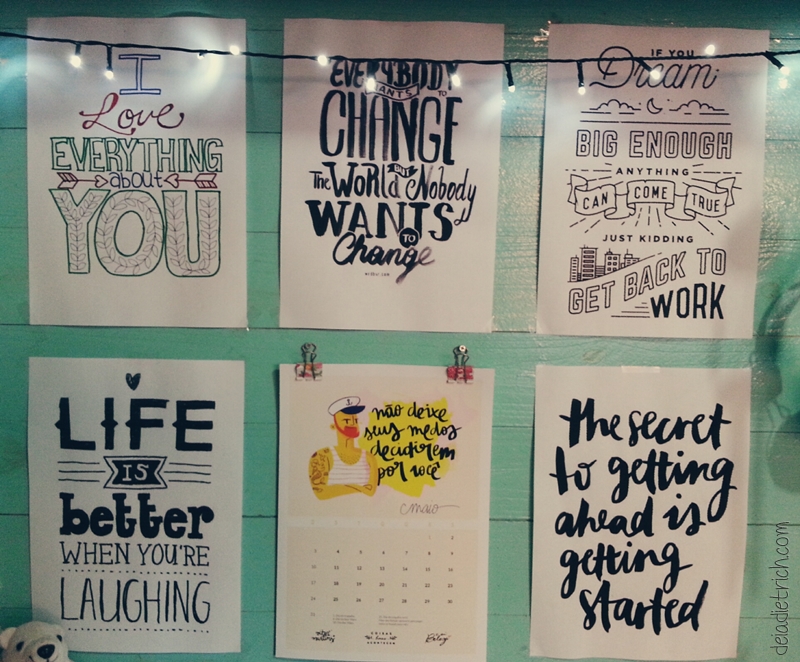 I
Love
EVERYTHING
about
YOU
EVERYBODY
WANTS TO
CHANGE
The WORLD BUT Nobody
WANTS
TO
Change
IF YOU
Dream
BIG ENOUGH
ANYTHING
CAN COME TRUE
JUST KIDDING
GET BACK TO
WORK
LIFE
IS
better
WHEN YOU'RE
LAUGHING
não deixe
seus medos
decidirem
por você
maio
1 2
3 4 5 6 7 8 9
10 11 12 13 14 15 16
17 18 19 20 21 22 23
24 25 26 27 28 29 30
31
the secret
to getting
ahead is
getting
started
deiadietrich.com